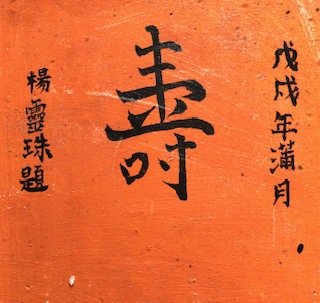 戊戌年蒲月
壽
楊靈珠題